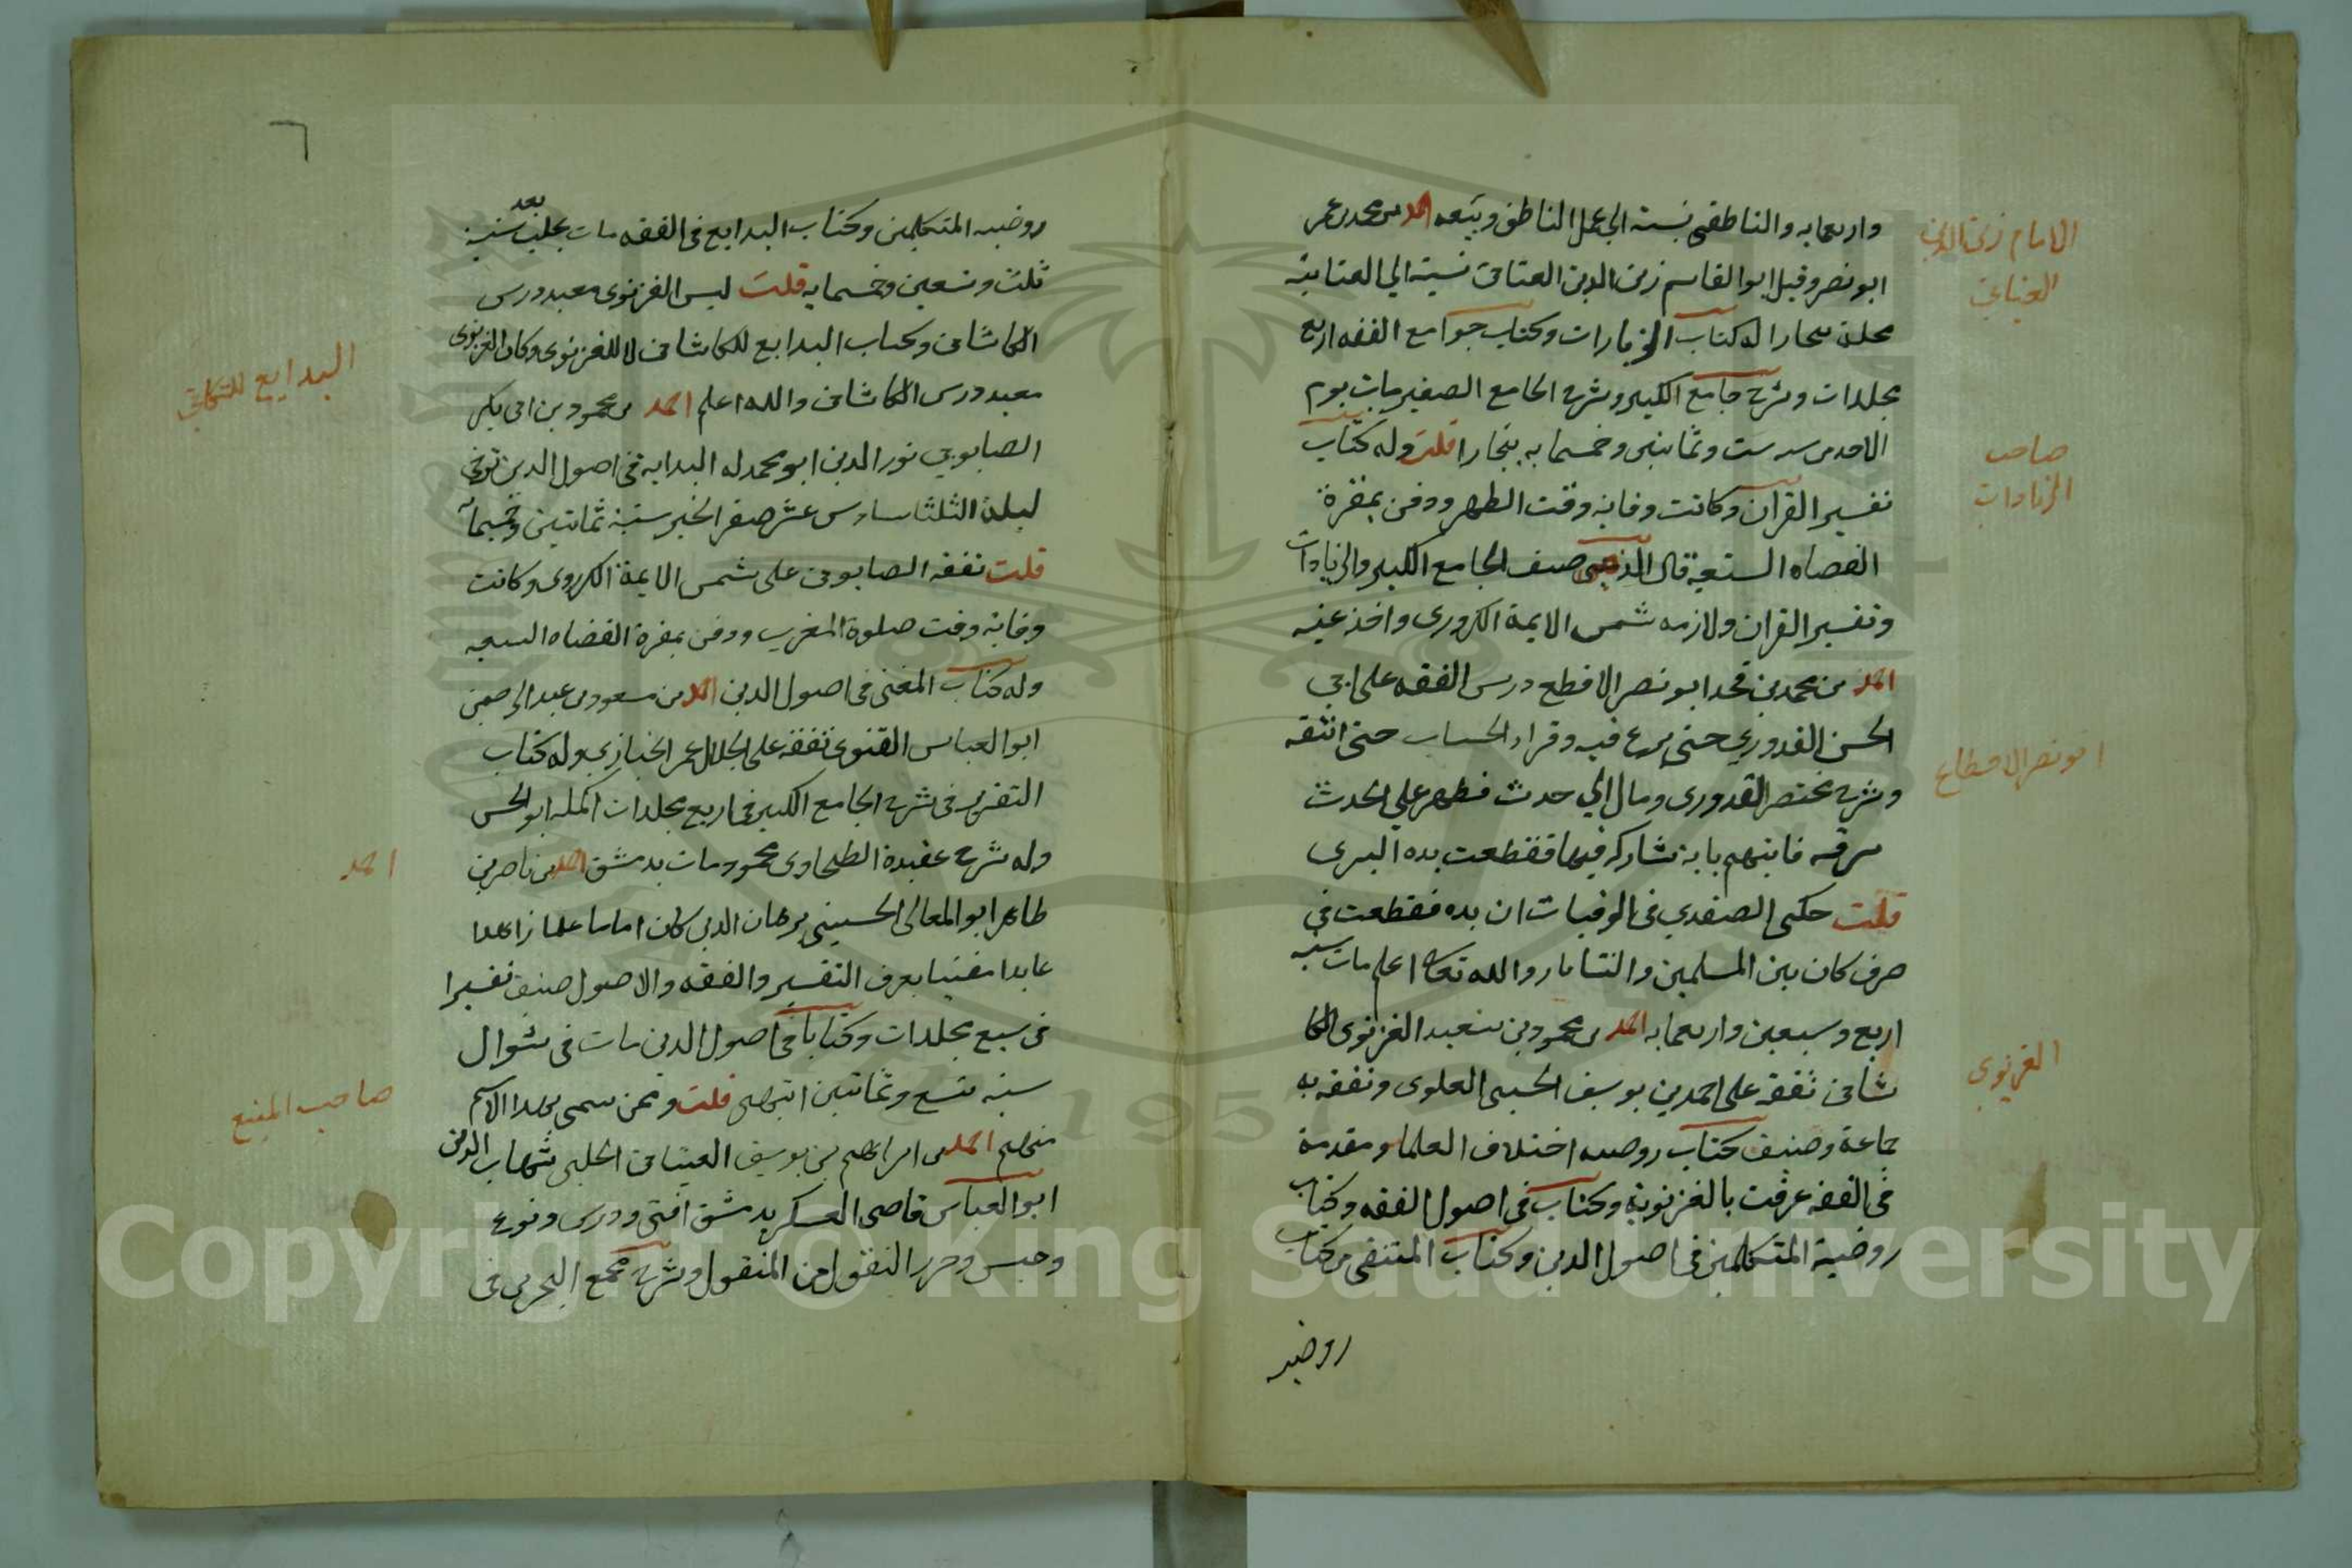 واربعمايه والناطفى نسبة الي عمل الناطف وبيعه احمد بن محمد بن عمر
ابو نصر وقيل ابو القاسم زين الدين العتابى نسبة الي العتابية
محلة ببخارا له كتاب الزيادات وكتاب جوامع الفقه اربع
مجلدات وشرح جامع الكبير وشرح الجامع الصغير مات يوم
الاحد سنة ست وثمانين وخمسمايه ببخارا قلت وله كتاب
تفسير القران وكانت وفاته وقت الظهر ودفن بمقبرة
القضاه السبعة قال الذهبى صنف الجامع الكبير والزيادات
وتفسير القران ولازمه شمس الايمة الكردرى واخذ عنه
احمد بن محمد بن محمد ابو نصر الاقطع درس الفقه على ابي
الحسن القدوري حتى برع فيه وقرا الحساب حتى اتقنه
وشرح مختصر القدورى ومال الي حدث فظهر على الحدث
سرقه فاتهم بانه شاركه فيها فقطعت يده اليسرى
قلت حكى الصفدي في الوفيات ان يده قطعت في
حرب كان بين المسلمين والتتار والله تعالى اعلم مات سنة
اربع وسبعين واربعمايه احمد بن محمود بن سعيد الغزنوى الكا
شانى تفقه على احمد بن يوسف الحسينى العلوى وتفقه به
جماعة وصنف كتاب روضه اختلاف العلما ومقدمة
في الفقه عرفت بالغزنوية وكتاب في اصول الفقه وكتاب
روضة المتكلمين في اصول الدين وكتاب المنتقى من كتاب
روضه
الامام زين الدين
العتابي
صاحب
الزيادات
ابو نصر الاقطع
الغزنوي
٦
روضه المتكلمين وكتاب البدايع في الفقه مات بحلب بعد سنة
ثلث وتسعين وخمسمايه قلت ليس الغزنوى معيد درس
الكاشانى وكتاب البدايع للكاشانى لا للغزنوى وكان الغزنوى
معيد درس الكاشانى والله اعلم احمد بن محمود بن ابى بكر
الصابوني نور الدين ابو محمد له البداية في اصول الدين توفى
ليلة الثلثا سادس عشر صفر الخير سنة ثمانين وخمسمائة
قلت تفقه الصابونى على شمس الايمة الكردرى وكانت
وفاته وقت صلوة المغرب ودفن بمقبرة القضاه السبعه
وله كتاب المغنى في اصول الدين احمد بن مسعود بن عبد الرحمن
ابو العباس القنوى تفقه على الجلال عمر الخبازي وله كتاب
التقرير في شرح الجامع الكبير في اربع مجلدات اكمله ابو الحسن
وله شرح عقيدة الطحاوى محمود مات بدمشق احمد بن ناصر بن
طاهر ابو المعالى الحسيني برهان الدين كان اماما عالما زاهدا
عابدا مفتيا يعرف التفسير والفقه والاصول صنف تفسيرا
في سبع مجلدات وكتابا في اصول الدين مات في شوال
سنه تسع وثمانين انتهى قلت وممن سمى بهذا الاسم
منهم احمد بن ابراهيم بن يوسف العينتابى الحلبى شهاب الدين
ابو العباس قاضى العسكر بدمشق افتى ودرس ونوع
وجنس وحرر النقول من المنقول وشرح مجمع البحرين في
البدايع للكاشاني
احمد
صاحب المنبع
Copyright © King Saud University
1957